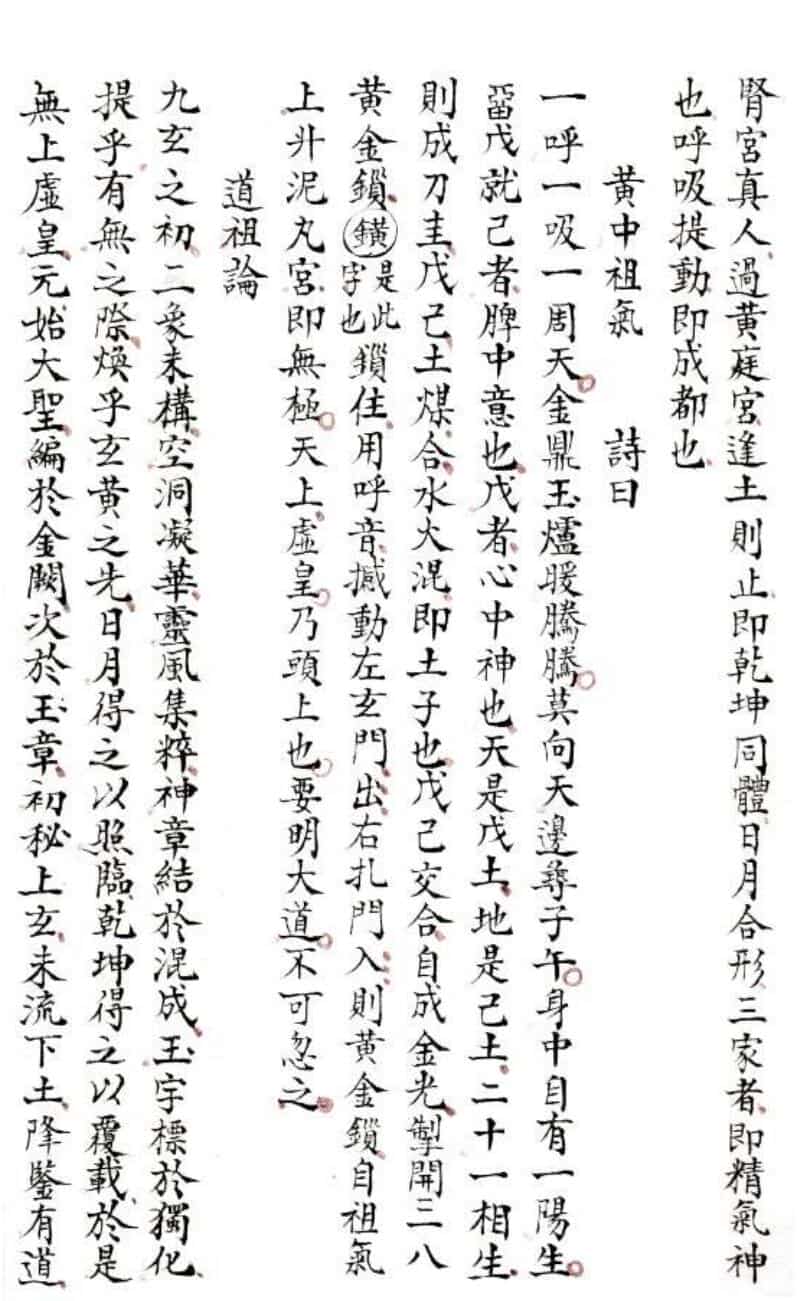 腎宮真人過黃庭宮逢土則止即乾坤同體日月合形三家者即精氣神
也呼吸提動即成都也
黃中祖氣　詩曰
一呼一吸一周天金鼎玉爐暖騰騰莫向天邊尋子午身中自有一陽生
畱戊就己者脾中意也戊者心中神也天是戊土地是己土二十一相生
則成刀圭戊己土煤合水火混即土子也戊己交合自成金光掣開三八
黃金鎖鐄是此字也鎖住用呼音撼動左玄門出右扎門入則黃金鎖自祖氣
上升泥丸宮即無極天上虛皇乃頭上也要明大道不可忽之
道祖論
九玄之初二象未構空洞凝華靈風集粹神章結於混成玉字標於獨化
提乎有無之際煥乎玄黃之先日月得之以照臨乾坤得之以覆載於是
無上虛皇元始大聖編於金闕次於玉章初秘上玄未流下土降鑒有道